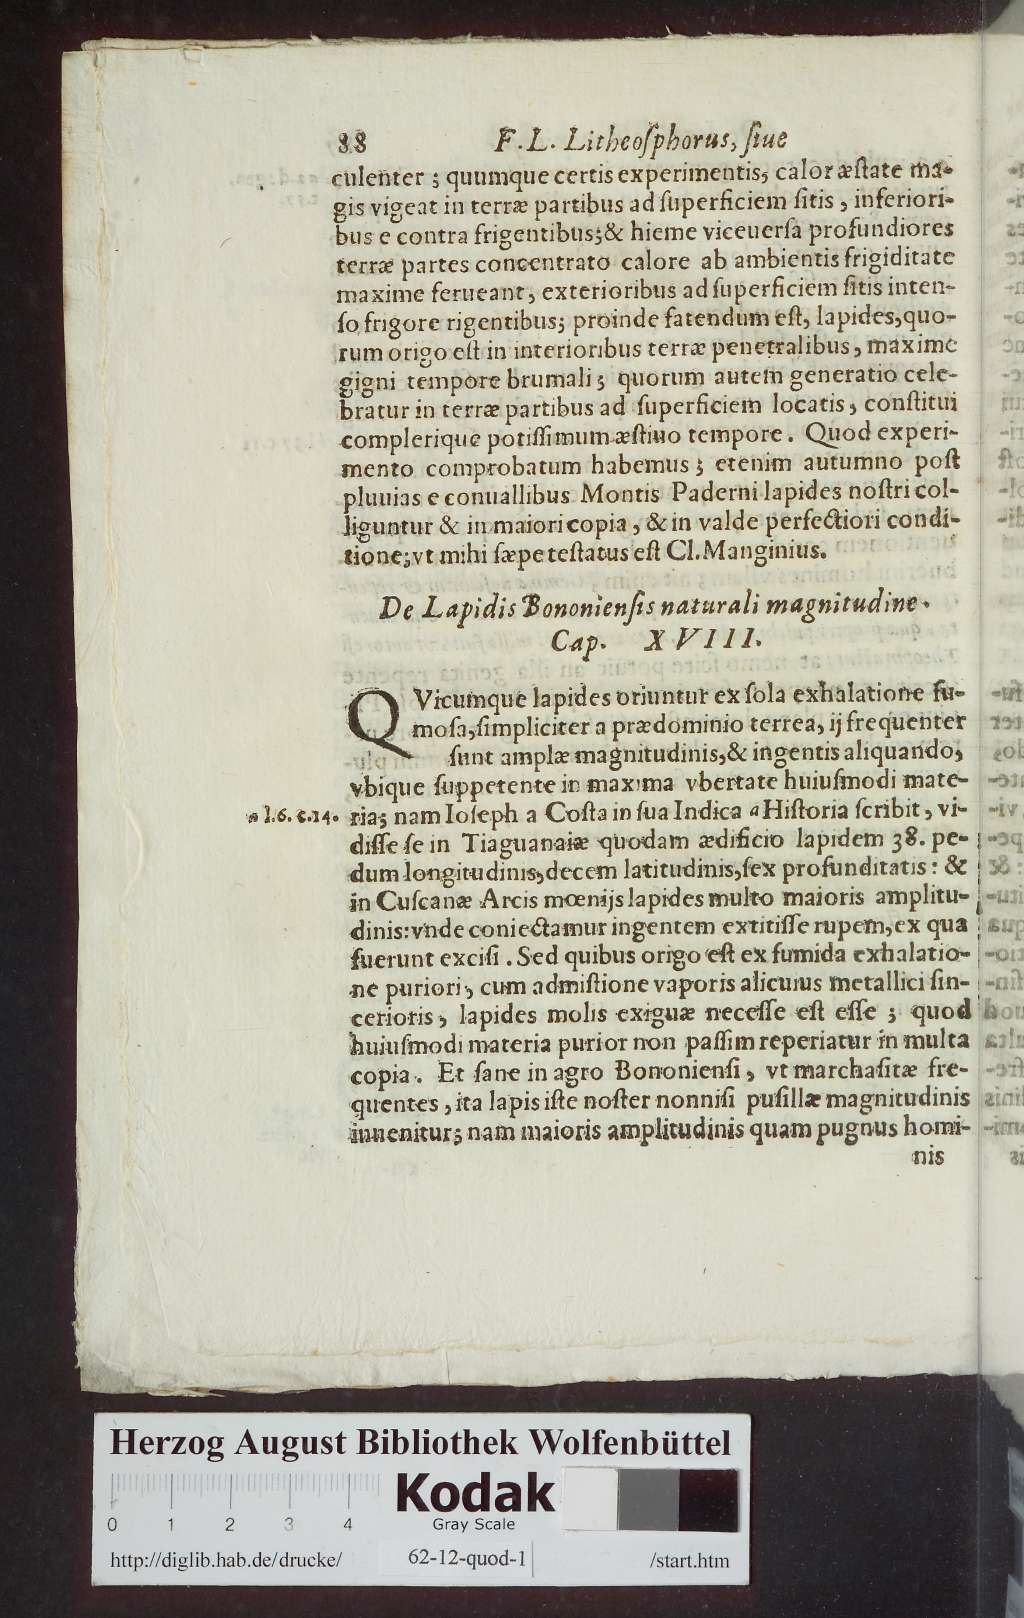 88 F. L. Litheoſphorus, ſiue
culenter ; quumque certis experimentis, calor æſtate ma-
gis vigeat in terræ partibus ad ſuperficiem ſitis , inferiori-
bus e contra frigentibus;& hieme viceuerſa profundiores
terræ partes concentrato calore ab ambientis frigiditate
maxime ferueant, exterioribus ad ſuperficiem ſitis inten-
ſo frigore rigentibus; proinde fatendum eſt, lapides,quo-
rum origo eſt in interioribus terræ penetralibus, maxime
gigni tempore brumali ; quorum autem generatio cele-
bratur in terræ partibus ad ſuperficiem locatis , conſtitui
complerique potiſſimum æſtiuo tempore. Quod experi-
mento comprobatum habemus ; etenim autumno poſt
pluuias e conuallibus Montis Paderni lapides noſtri col-
liguntur & in maiori copia , & in valde perfectiori condi-
tione;vt mihi ſæpe teſtatus eſt Cl. Manginius.
De Lapidis Bononienſis naturali magnitudine.
Cap. XVIII.
QVicumque lapides oriuntur ex ſola exhalatione fu-
moſa,ſimpliciter a prædominio terrea, ij frequenter
ſunt amplæ magnitudinis,& ingentis aliquando,
vbique ſuppetente in maxima vbertate huiuſmodi mate-
a l.6. c.14. ria; nam Ioſeph a Coſta in ſua Indica a Hiſtoria ſcribit , vi-
diſſe ſe in Tiaguanaiæ quodam ædificio lapidem 38. pe-
dum longitudinis,decem latitudinis,ſex profunditatis : &
in Cuſcanæ Arcis mœnijs lapides multo maioris amplitu-
dinis: vnde coniectamur ingentem extitiſſe rupem, ex qua
fuerunt exciſi . Sed quibus origo eſt ex fumida exhalatio-
ne puriori, cum admiſtione vaporis alicuius metallici ſin-
cerioris , lapides molis exiguæ neceſſe eſt eſſe ; quod
huiuſmodi materia purior non paſſim reperiatur in multa
copia . Et ſane in agro Bononienſi , vt marchaſitæ fre-
quentes , ita lapis iſte noſter nonniſi puſillæ magnitudinis
inuenitur; nam maioris amplitudinis quam pugnus homi-
nis
Herzog August Bibliothek Wolfenbüttel
Kodak
Gray Scale
0 1 2 3 4
http://diglib.hab.de/drucke/ 62-12-quod-1 /start.htm